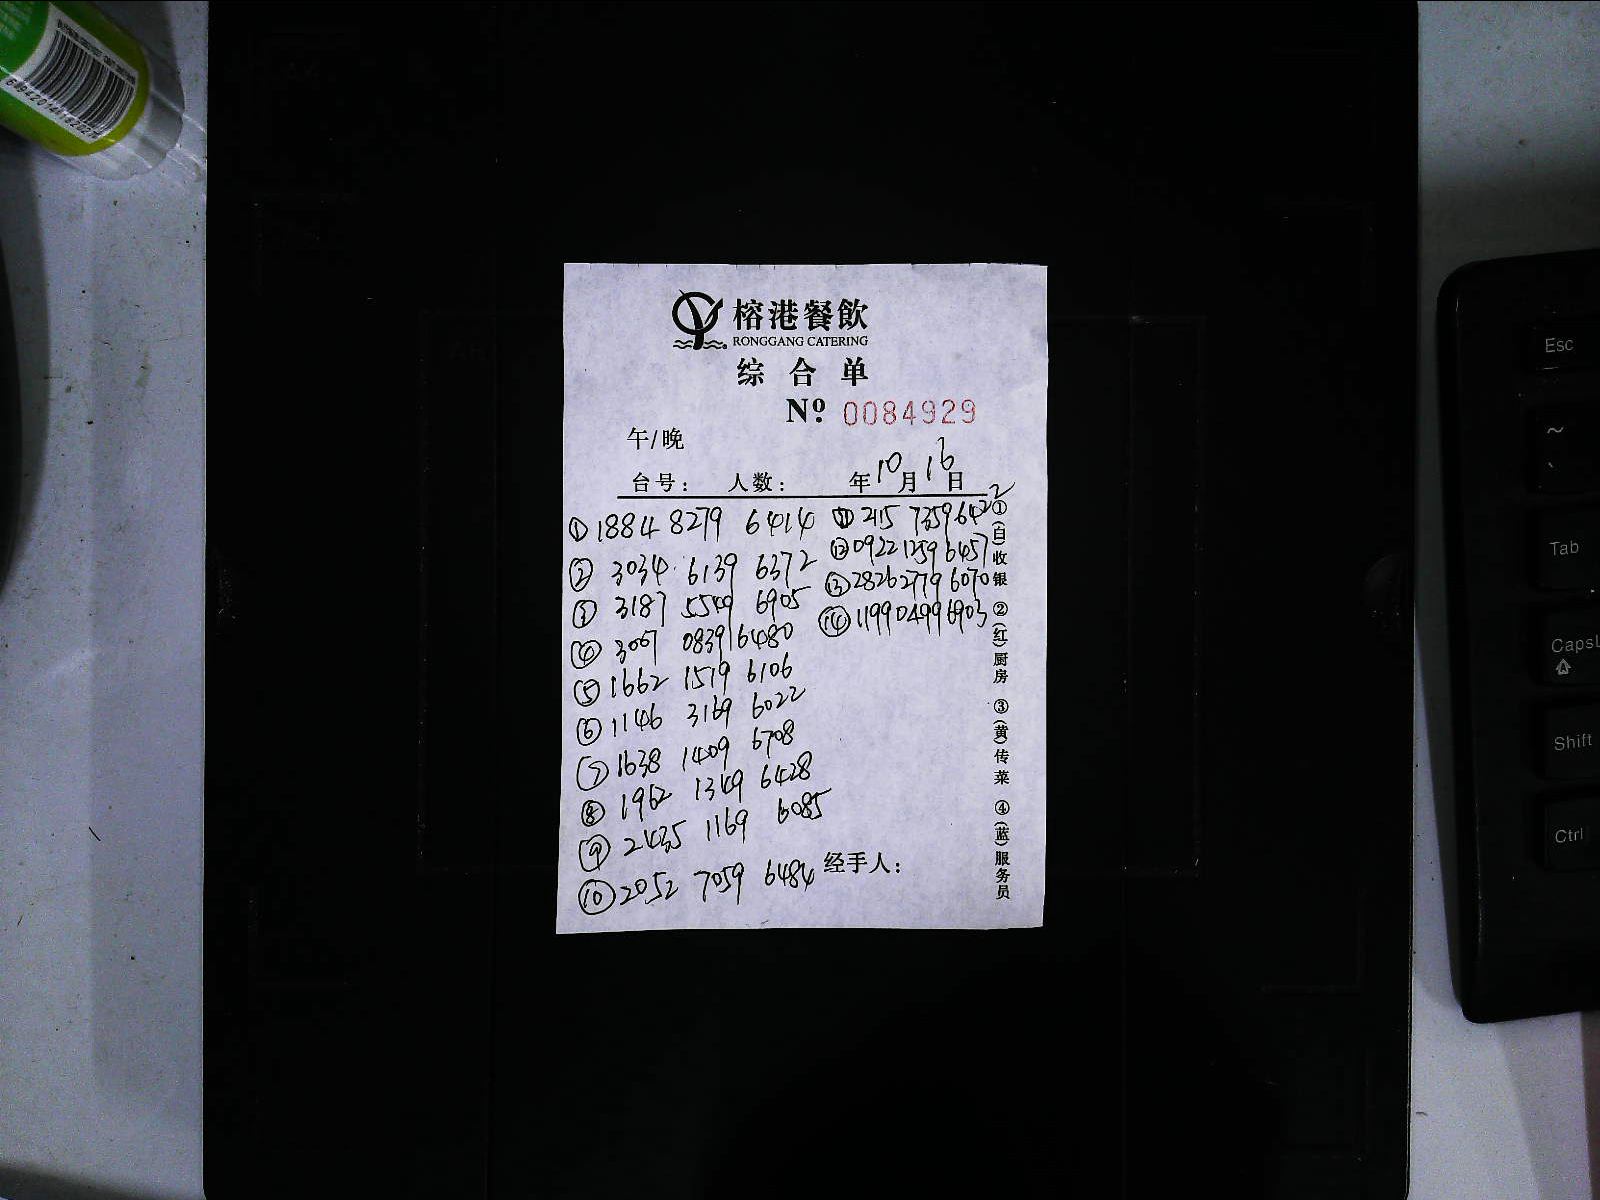 榕港餐飲
RONGGANG CATERING
综合单
Nº 0084929
午/晚
台号： 人数： 年10月16日
① 1884 8279 6414
② 3034 6139 6372
③ 3187 5549 6905
④ 3007 0839 6480
⑤ 1662 1519 6106
⑥ 1146 3169 6022
⑦ 1638 1409 6708
⑧ 1962 1349 6428
⑨ 2435 1169 6085
⑩ 2052 7059 6484
⑪ 2115 7359 6422
⑫ 0922 1259 6457
⑬ 2826 2779 6070
⑭ 1199 0499 6903
经手人：
①(白)收银 ②(红)厨房 ③(黄)传菜 ④(蓝)服务员
Esc
~
Tab
Caps
Shift
Ctrl